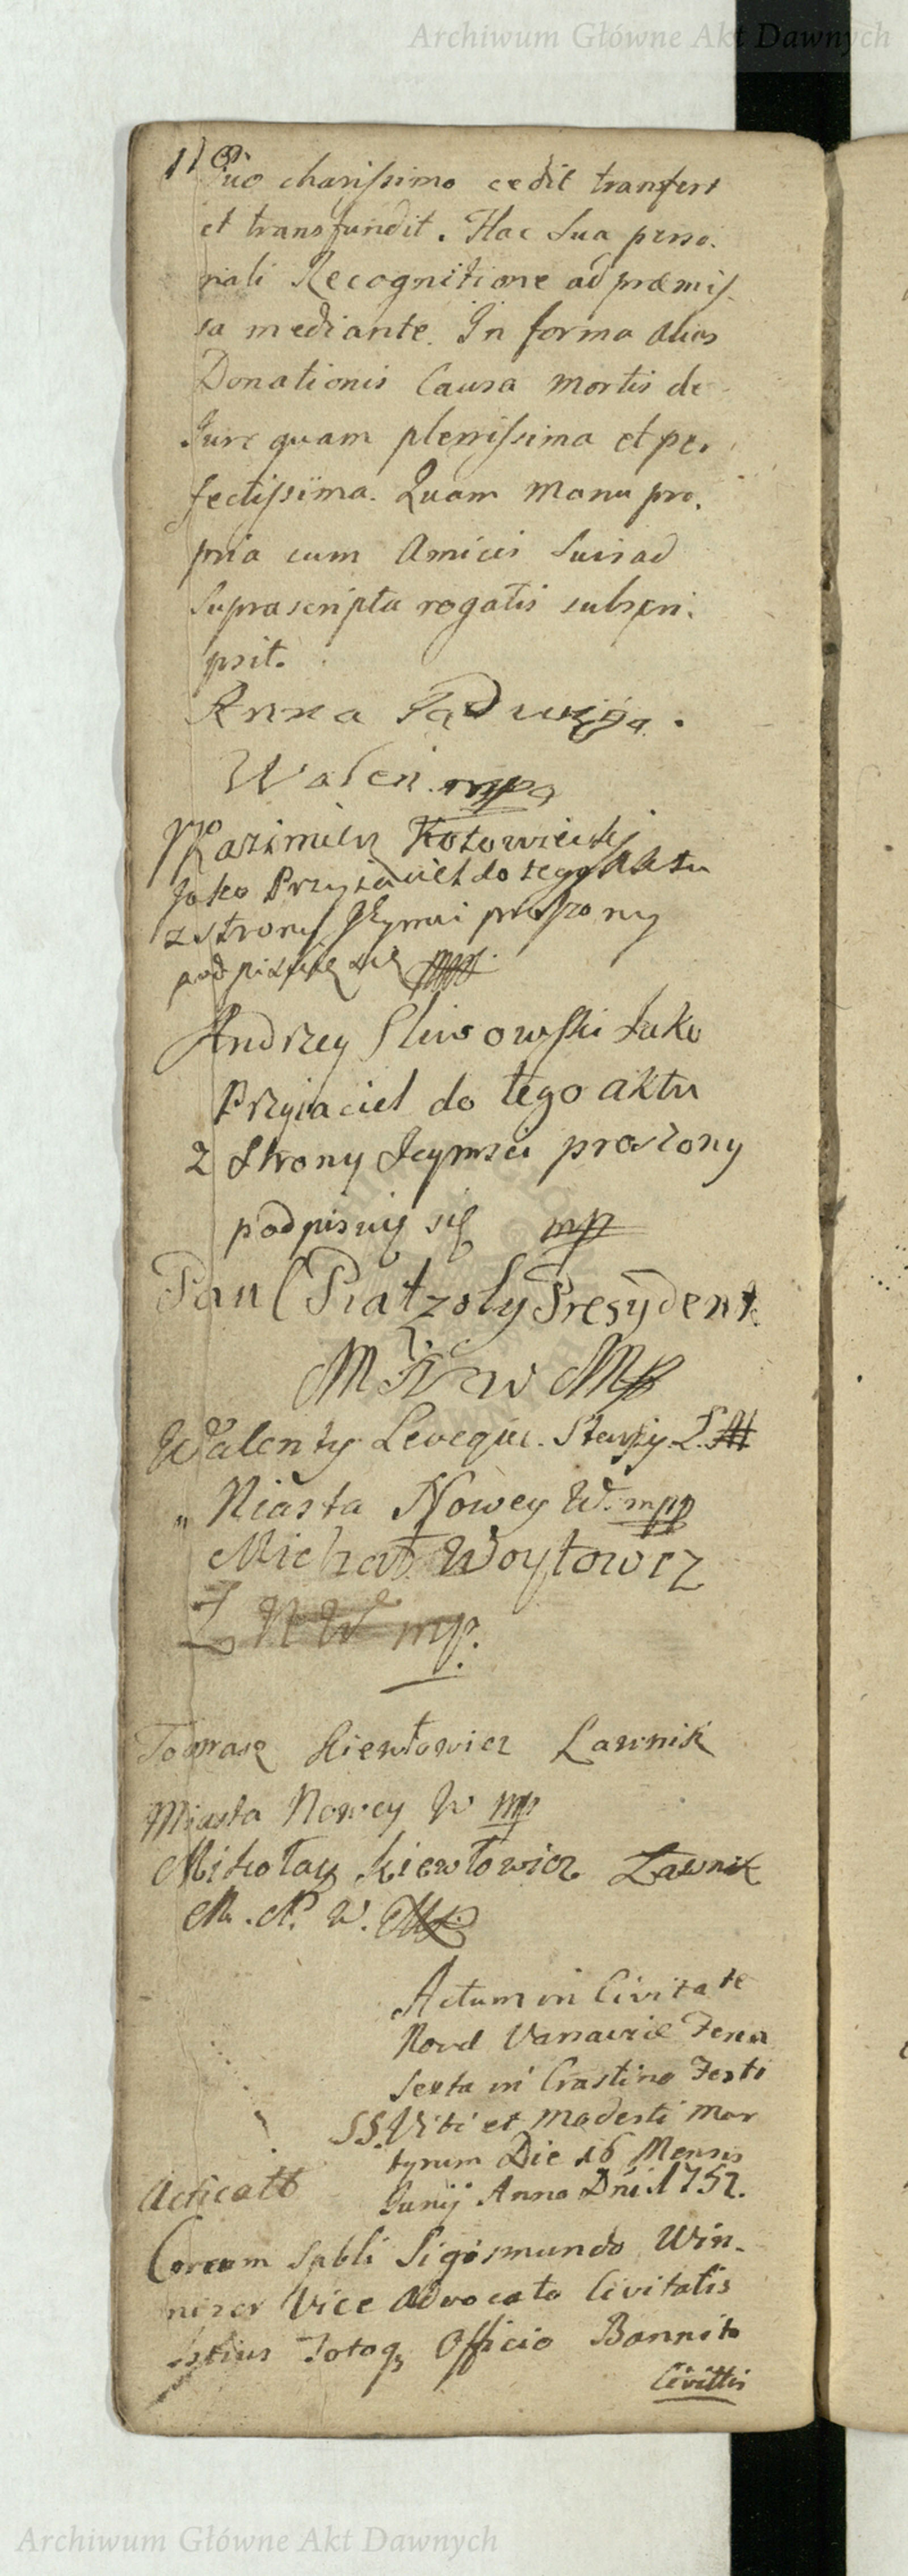 Archiwum Główne Akt Dawnych
Suo charissimo cedit transfert
et transfundit. Hac Sua perso.
nali Recognitione ad præmis.
sa mediante. In forma
Donationis Causa Mortis de
Jure quam plenissima et per.
fectissima. Quam Manu pro.
pria cum Amicis Suis ad
Suprascripta rogatis subscri.
psit.
Anna Jadwiga.
mpa
Kazimierz Kotowiecki
Jako Przyjaciel do tego Aktu
z strony Jeymci proszony
podpisuię się
Andrzey Sliwowski Jako
Przyiaciel do tego aktu
z Strony Jeymsci proszony
podpisuię się mp
Paul Piatzoly Presydent
M N W Mp
Walenty Leveque. Starszy Ł.
Miasta Nowey W. mpp
Michał Woytowicz
Ł N W mp.
Tomasz Kiewłowicz Lawnik
Miasta Nowey W mp
Mikołay Kiewłowicz Lawnik
M. N. W.
Actum in Civitate
Nova Varsaviæ Feria
Sexta in Crastino Festi
SS. Viti et Modesti Mar
tyrum Die 16 Mensis
Junij Anno Dni 1752.
Coram Spbli Sigismundo Win-
Vice Advocato Civitatis
Istius Totoq Officio Bannito
Civittis
Archiwum Główne Akt Dawnych